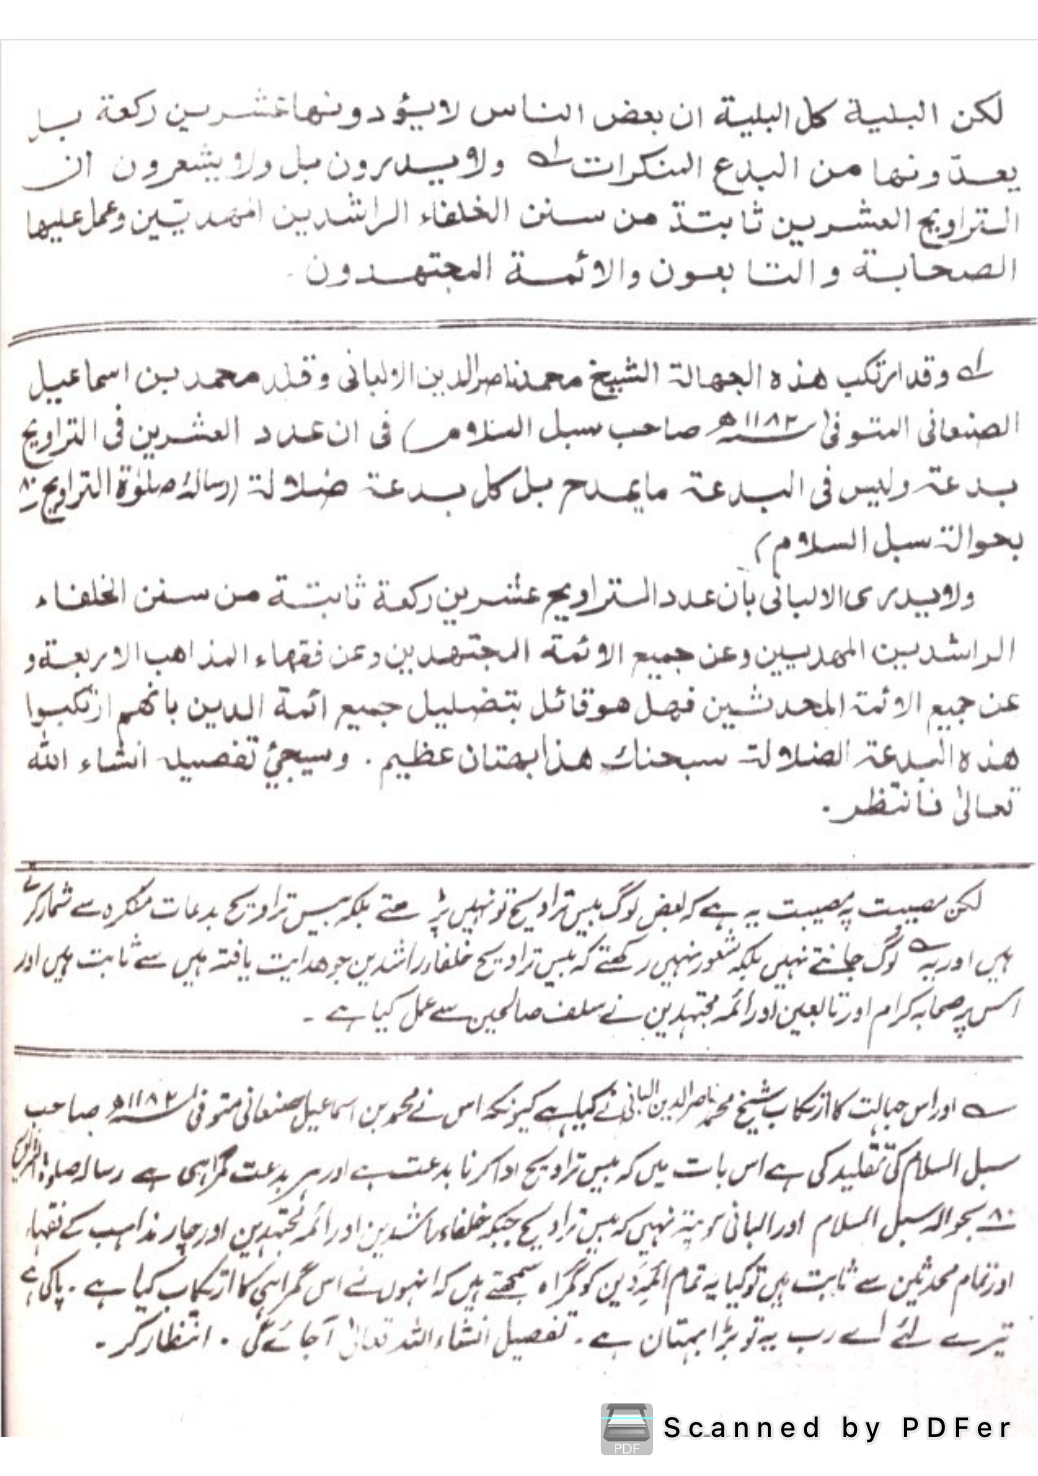 لكن البلية كل البلية ان بعض الناس لا يؤدونها عشرين ركعة بل
يعدّونها من البدع المنكرات له ولا يدرون بل ولا يشعرون ان
التراويح العشرين ثابتة من سنن الخلفاء الراشدين المهديّين وعمل عليها
الصحابة والتابعون والائمة المجتهدون۔
له وقد ارتكب هذه الجهالة الشيخ محمد ناصر الدين الالبانى وقلد محمد بن اسماعيل
الصنعانى المتوفى ١١٨٢ھ صاحب سبل السلام) فى ان عدد العشرين فى التراويح
بدعة وليس فى البدعة ما يمدح بل كل بدعة ضلالة (رسالۂ صلوٰة التراويح ٨٠
بحوالة سبل السلام)
ولا يدرى الالبانى بأن عدد التراويح عشرين ركعة ثابتة من سنن الخلفاء
الراشدين المهديين وعن جميع الائمة المجتهدين وعن فقهاء المذاهب الاربعة و
عن جميع الائمة المحدثين فهل هو قائل بتضليل جميع ائمة الدين بانهم ارتكبوا
هذه البدعة الضلالة سبحنك هذا بهتان عظيم . وسيجئ تفصيله انشاء الله
تعالىٰ فانتظر .
لکن مصیبت پہ مصیبت یہ ہے کہ بعض لوگ بیس تراویح تو نہیں پڑھتے بلکہ بیس تراویح بدعات منکرہ سے شمار کرتے
ہیں اور یہ لہ لوگ جانتے نہیں بلکہ شعور نہیں رکھتے کہ بیس تراویح خلفاء راشدین جو ھدایت یافتہ ہیں سے ثابت ہیں اور
اس پر صحابہ کرام اور تابعین اور ائمہ مجتہدین نے سلف صالحین سے عمل کیا ہے ۔
لہ اور اس جہالت کا ارتکاب شیخ محمد ناصر الدین البانی نے کیا ہے کیونکہ اس نے محمد بن اسماعیل صنعانی متوفی ١١٨٢ھ صاحب
سبل السلام کی تقلید کی ہے اس بات میں کہ بیس تراویح ادا کرنا بدعت ہے اور ہر بدعت گمراہی ہے رسالہ صلوٰۃ التراویح
٨٠ بحوالہ سبل السلام اور البانی کو پتہ نہیں کہ بیس تراویح جبکہ خلفاء راشدین اور ائمہ مجتہدین اور چار مذاہب کے فقہاء
اور تمام محدثین سے ثابت ہیں تو کیا یہ تمام ائمہ دین کو گمراہ سمجھتے ہیں کہ انہوں نے اس گمراہی کا ارتکاب کیا ہے . پاکی ہے
تیرے لئے اے رب یہ تو بڑا بہتان ہے ۔ تفصیل انشاء اللہ تعالیٰ آ جائے گی ۔ انتظار کر ۔
PDF Scanned by PDFer